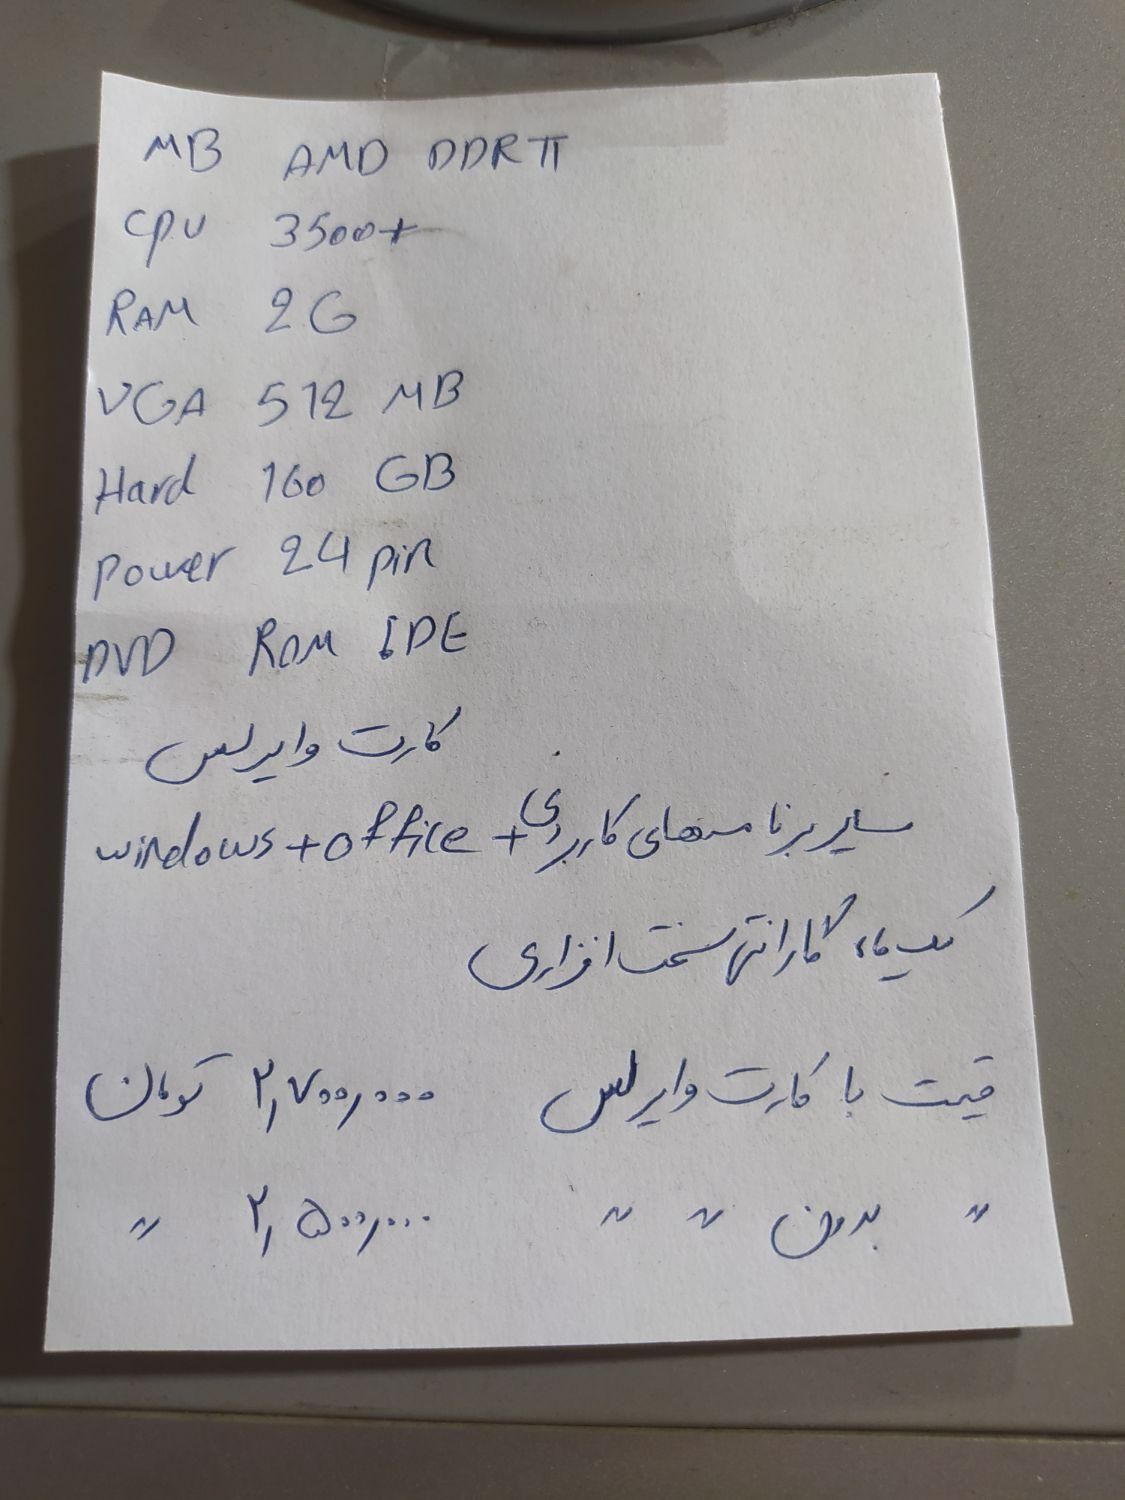 MB AMD DDR II
CPU 3500+
RAM 2G
VGA 512 MB
Hard 160 GB
Power 24 pin
DVD RAM IDE
کارت وایرلس
windows + office + سایر برنامه‌های کاربردی
یک ماه گارانتی سخت افزاری
قیمت با کارت وایرلس ۲,۷۰۰,۰۰۰ تومان
〃 بدون 〃 〃 ۲,۵۰۰,۰۰۰ 〃